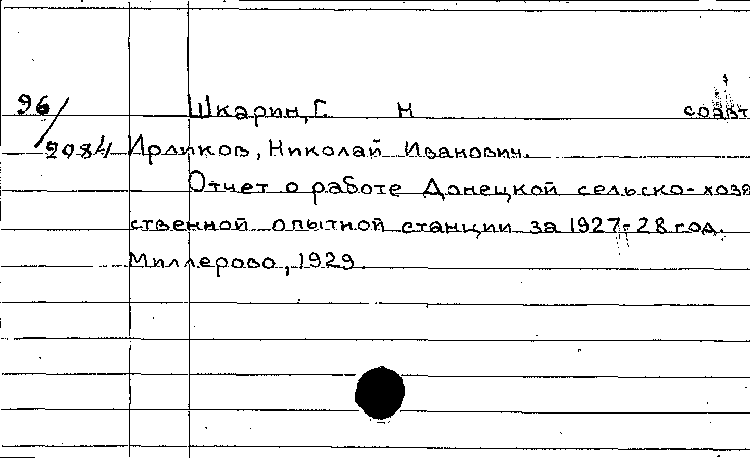 96/2984
Шкарин, Г. Н соавт
Ирликов, Николай Иванович.
Отчет о работе Донецкой сельско-хозя
ственной опытной станции за 1927-28 год.
Миллерово, 1929.